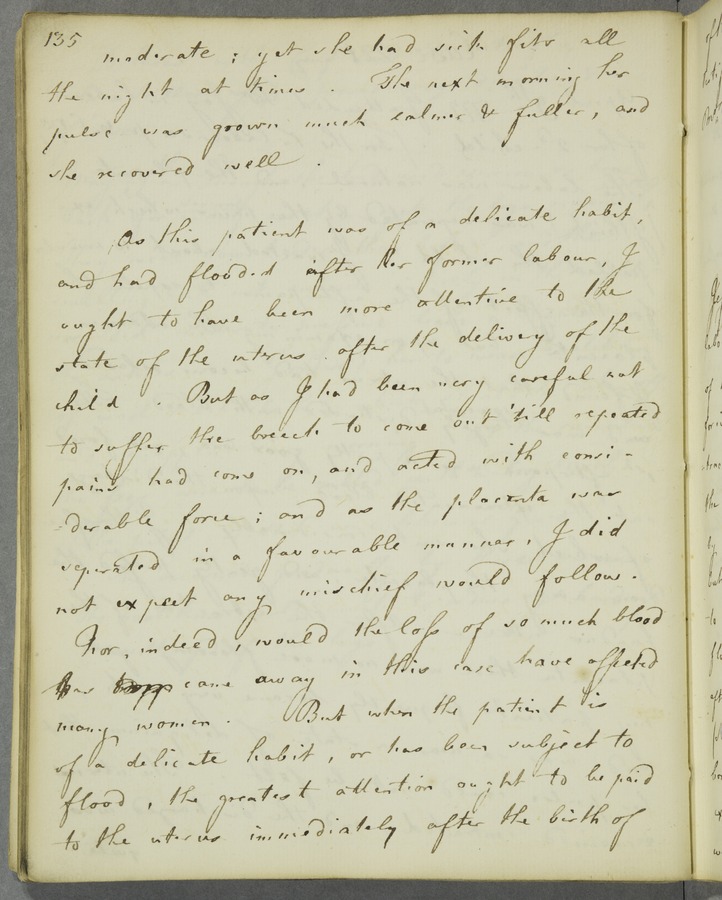 135
moderate ; yet she had sick fits all
the night at times . The next morning her
pulse was grown much calmer & fuller, and
she recovered well .
As this patient was of a delicate habit,
and had flooded after her former labour, I
ought to have been more attentive to the
state of the uterus after the delivery of the
child . But as I had been very careful not
to suffer the breech to come out 'till repeated
pains had come on, and acted with consi-
-derable force ; and as the placenta was
seperated in a favourable manner, I did
not expect any mischief would follow .
Nor, indeed, would the loss of so much blood
as came away in this case have affected
many women . But when the patient is
of a delicate habit, or has been subject to
flood, the greatest attention ought to be paid
to the uterus immediately after the birth of